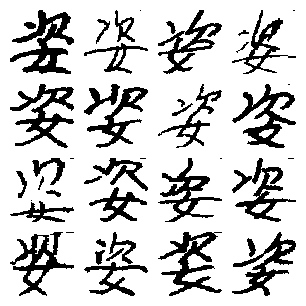 姿姿姿姿
姿姿姿姿
姿姿姿姿
姿姿姿姿